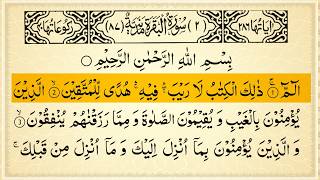 اٰیَاتُهَا ٢٨٦ (٢) سُوْرَةُ الْبَقَرَةِ مَدَنِيَّةٌ (٨٧) رُكُوْعَاتُهَا
بِسْمِ اللّٰهِ الرَّحْمٰنِ الرَّحِيْمِ
الٓمّٓ ۚ﴿١﴾ ذٰلِكَ الْكِتٰبُ لَا رَيْبَ ۛۖ فِيْهِ ۛۚ هُدًى لِّلْمُتَّقِيْنَ ۙ﴿٢﴾ الَّذِيْنَ
يُؤْمِنُوْنَ بِالْغَيْبِ وَ يُقِيْمُوْنَ الصَّلٰوةَ وَ مِمَّا رَزَقْنٰهُمْ يُنْفِقُوْنَ ۙ﴿٣﴾
وَ الَّذِيْنَ يُؤْمِنُوْنَ بِمَاۤ اُنْزِلَ اِلَيْكَ وَ مَاۤ اُنْزِلَ مِنْ قَبْلِكَ ۚ